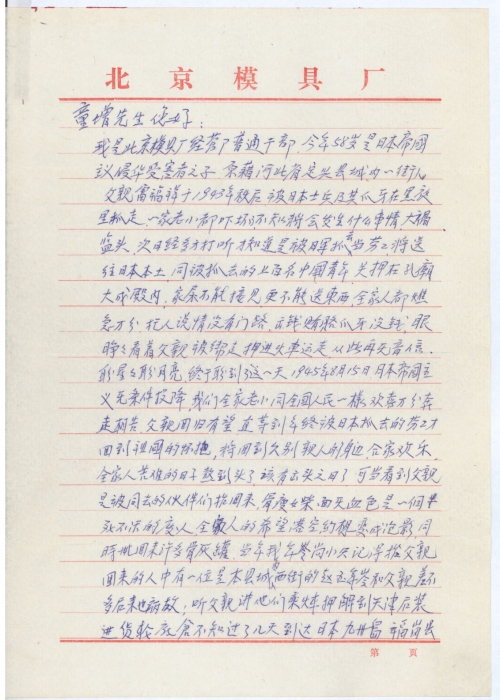 北京模具厂
童增先生你好：
我是北京模具厂经营部普通干部 今年58岁是日本帝國
议侵华受害者之子 原籍河北省定兴县城内一街人
父親 福祥于1943年秋后被日本士兵及其爪牙在里放
里抓走，一家老小都吓坏了不知将会发生什么事情 大祸
临头，次日经多方打听才知道是被日軍抓当劳工将送
往日本本土 同被抓去的上百名中國青年 关押在孔廟
大成殿内，家属不能接见 更不能送东西 全家人都焦
急万分 托人说情没有门路，出钱贿赂爪牙没钱 眼
睁睁看着父親被绑走押進火車运走 从此再无音信，
盼星星盼月亮，终于盼到了这一天1945年8月15日日本帝國主
义无条件投降，我们全家老小同全国人民一樣欢喜万分奔
走相告 父親回归有望 直等到年终被日本抓去的劳工才
回到祖國的怀抱，将回到久别親人的身边 合家欢乐，
全家人苦难的日子熬到头了该有出头之日了 可当看到父親
是被同去的伙伴们抬回来，骨瘦如柴 面无血色是一个半
死不活的废人 全家人的希望落空幻想变成泡影 同
时抱回来许多骨灰罐 当年我年岁尚小只记得接父親
回来的人中有一位是本县城内西街的赵玉 年岁和父親差不
多后来也病故；听父親讲他们乘火車押解到天津后装
進货轮底倉不知过了几天到达日本九州岛 福岗县
第 頁